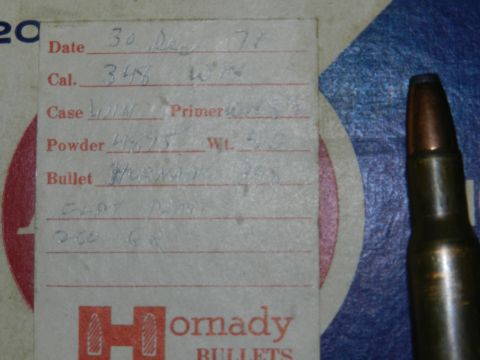 20
Date 30 Dec 78
Cal. 348 Win
Case WIN Primer
Powder Wt.
Bullet Hornady
FLAT POINT
200 GR
Hornady
BULLETS